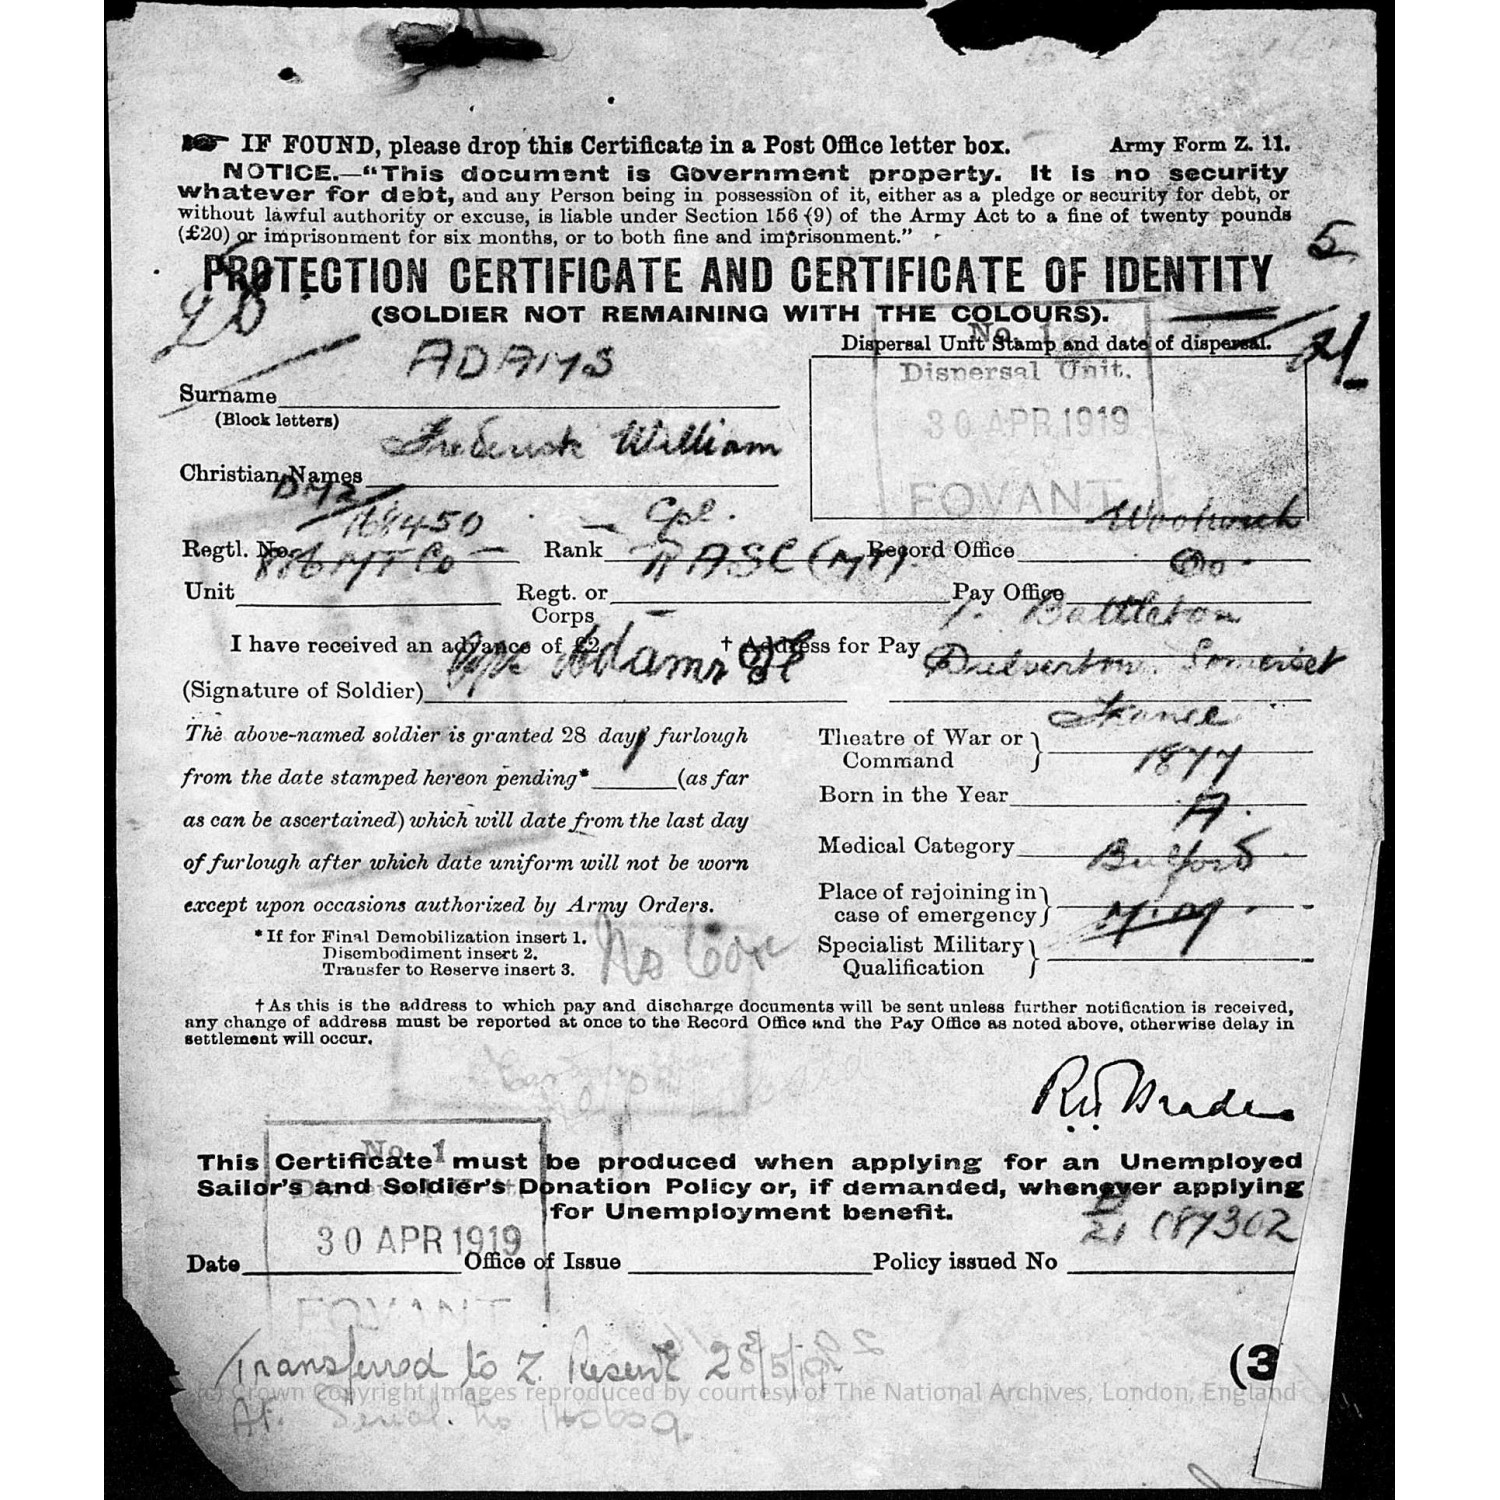 IF FOUND, please drop this Certificate in a Post Office letter box. Army Form Z. 11.
NOTICE.—"This document is Government property. It is no security
whatever for debt, and any Person being in possession of it, either as a pledge or security for debt, or
without lawful authority or excuse, is liable under Section 156 (9) of the Army Act to a fine of twenty pounds
(£20) or imprisonment for six months, or to both fine and imprisonment."
5
PROTECTION CERTIFICATE AND CERTIFICATE OF IDENTITY
(SOLDIER NOT REMAINING WITH THE COLOURS).
No. 1
Dispersal Unit Stamp and date of dispersal.
Dispersal Unit.
30 APR 1919
FOVANT
Surname ADAMS
(Block letters)
Christian Names Frederick William
Regtl. No. DM2/168450 Rank Cpl. Record Office Woolwich
Unit 886 MT Co Regt. or Corps RASC (MT). Pay Office Do.
I have received an advance of £2 † Address for Pay 1. Battleton
(Signature of Soldier) Cpl Adams Dulverton. Somerset
The above-named soldier is granted 28 days furlough
from the date stamped hereon pending* (as far
as can be ascertained) which will date from the last day
of furlough after which date uniform will not be worn
except upon occasions authorized by Army Orders.
* If for Final Demobilization insert 1.
Disembodiment insert 2.
Transfer to Reserve insert 3.
Theatre of War or Command France
Born in the Year 1877
Medical Category A.
Place of rejoining in case of emergency Bulford
Specialist Military Qualification
No
† As this is the address to which pay and discharge documents will be sent unless further notification is received,
any change of address must be reported at once to the Record Office and the Pay Office as noted above, otherwise delay in
settlement will occur.
No. 1
This Certificate must be produced when applying for an Unemployed
Sailor's and Soldier's Donation Policy or, if demanded, whenever applying
for Unemployment benefit.
30 APR 1919
Date Office of Issue Policy issued No 087302
FOVANT
Transferred to Z. Reserve 28/5/19
(3
(c) Crown Copyright Images reproduced by courtesy of The National Archives, London, England
At. Serial. No